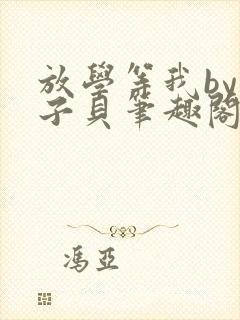 放學等我by
子貝筆趣閣
馮亞